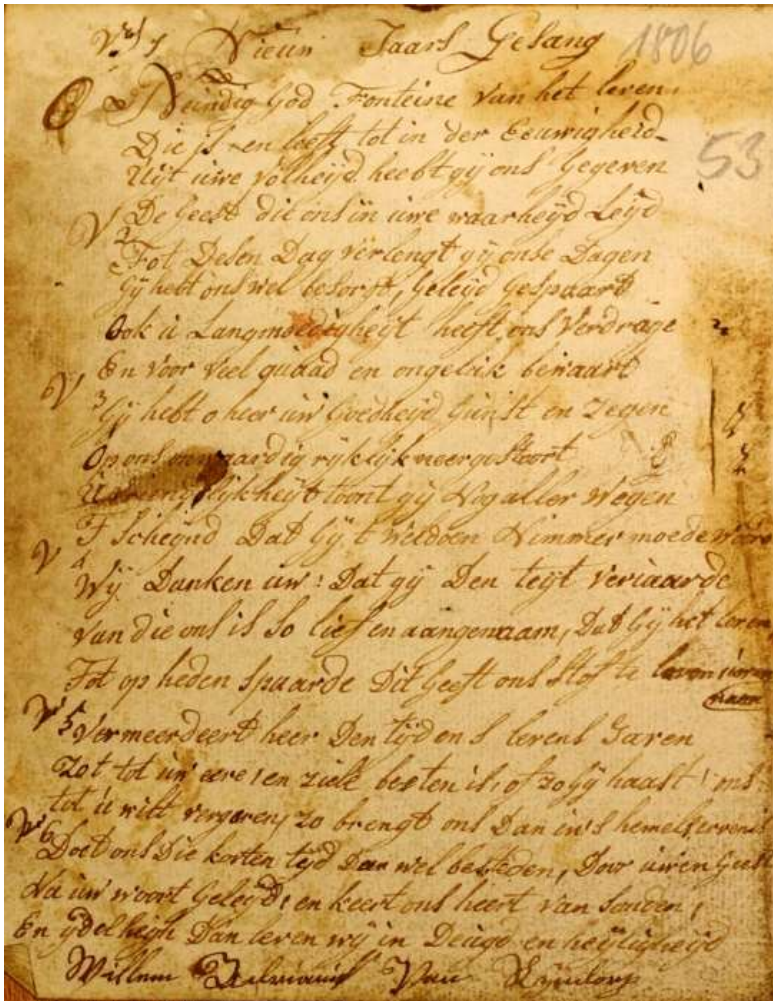 Vers 1 Nieuw Jaars Gesang 1806
O Oneindig God Fonteine van het leven
Die is en leeft tot in der Eeuwigheid
Uijt uwe volheijd heeft gij ons Gegeven 53
V De Geest die ons in uwe waarheijd Leijd
2 Tot Desen Dag verlengt gij onse Dagen
Gij hebt ons wel besorgt, Geleijd Gespaart
Ook u Langmoedigheijt heeft ons Verdrage
En voor veel quaad en ongelük bewaart
V 3 Gij hebt o heer uw Goedheijd Gunst en Zegen
Op ons onwaardig ryklijk neergestoort
U vriendlijkheijt toont gij Nog aller wegen
T Scheijnd Dat Gij t weldoen Nimmer moede
V 4 Wij Danken uw! Dat gij Den teijt veriaarde
Van die ons is So lief en aangenaam, Dat Gij het leven
Tot op heden spaarde Dit Geeft ons Stof te loven uwen
naam
V 5 Vermeerdert heer Den tijd ons levens Jaren
Zot tot uw eere! en ziele besten is, of zo Gij haast! ons
tot u wilt vergaren, zo brengt ons Dan in's hemels
V 6 Doet ons Die korten tyd Dan wel besteden, Door uwen Geest
Na uw woort Geleijd! en keert ons heert van Sonden!
En ydelheijh Dan leven wij in Deugd en heijligheijd
Willem Adriaanis Van